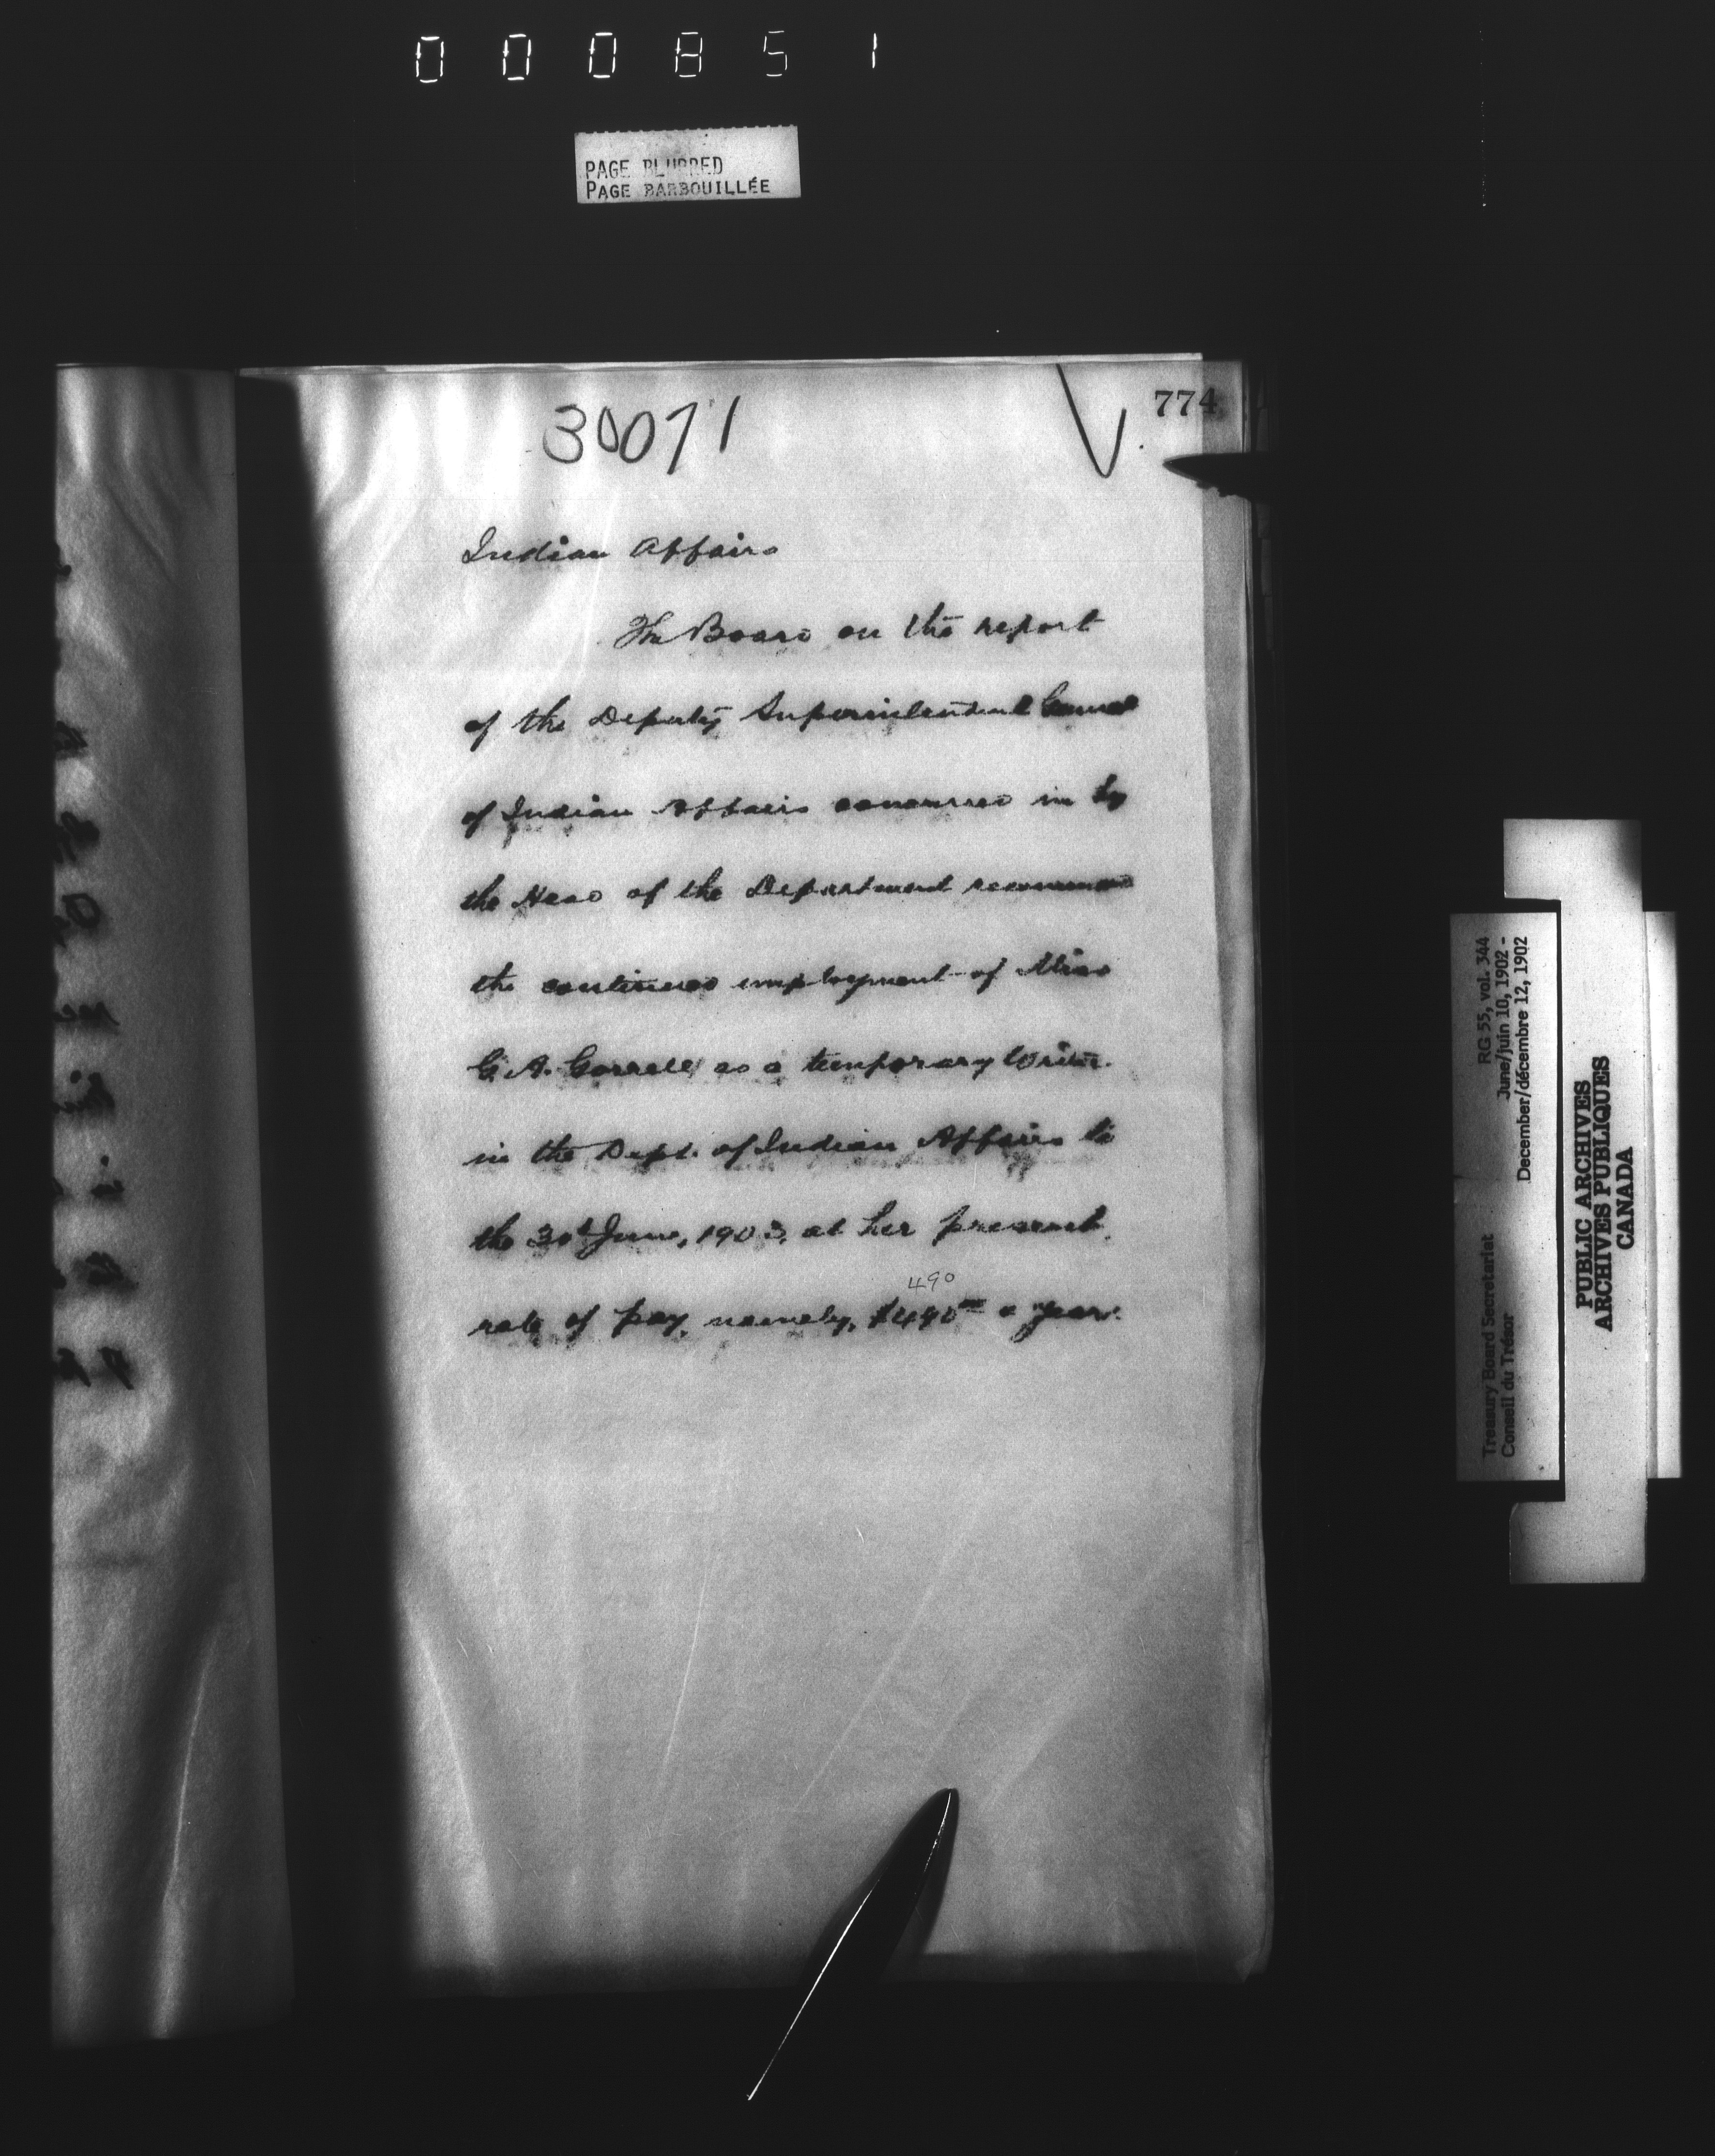 000851
PAGE BLURRED
PAGE BARBOUILLÉE
774
30071
Indian Affairs
The Board on the report
of the Deputy Superintendent General
of Indian Affairs concurred in by
the Head of the Department recommend
the continued employment of Miss
G. A. Gorrell as a temporary Writer
in the Dept. of Indian Affairs to
the 30th June, 1903, at her present
490
rate of pay, namely, $490 a year.
Treasury Board Secretariat RG 55, vol. 344
Conseil du Trésor June/juin 10, 1902 -
December/décembre 12, 1902
PUBLIC ARCHIVES
ARCHIVES PUBLIQUES
CANADA